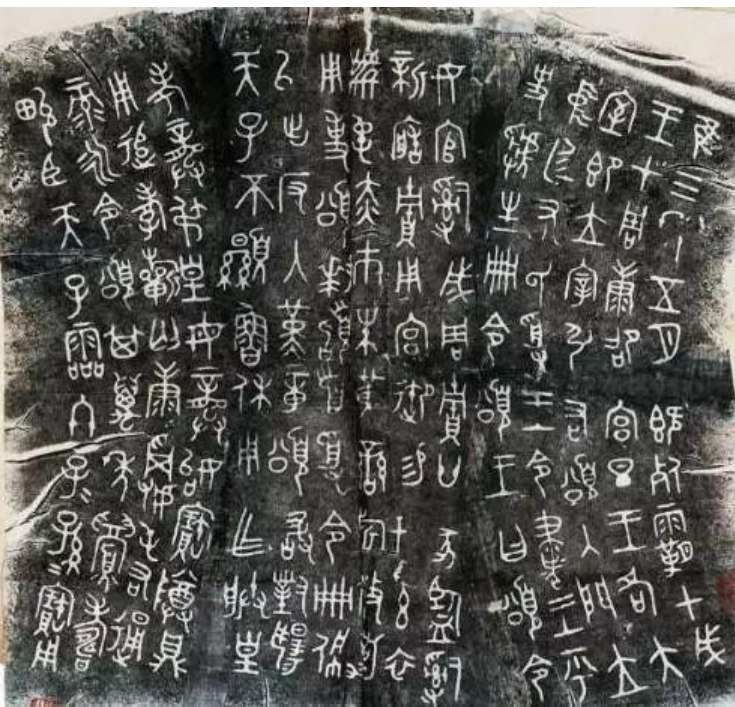 隹三年五月既死霸甲戌
王才周康卲宮旦王各大
室即立宰引右頌入門立中
廷尹氏受王令書王乎
史虢生冊令頌王曰頌令
女官𤔲成周貯廿家監𤔲
新造貯用宮御易女玄衣
黹屯赤巿朱黃鑾旂攸勒
用事頌拜稽首受令冊佩
以出反入堇章頌敢對揚
天子不顯魯休用乍朕皇
考龏弔皇母龏始寶尊鼎
用追孝祈匄康𩛥屯右通
彔永令頌其萬年眉壽
畯臣天子霝冬子子孫孫寶用